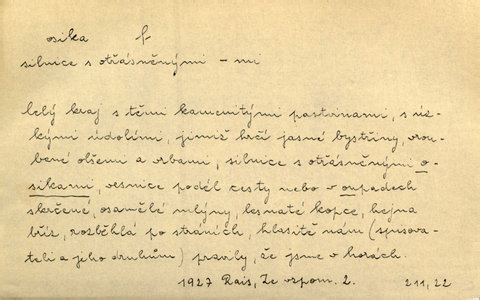 osika f
silnice s otřásněnými – mi
Celý kraj s těmi kamenitými pastvinami, s úz-
kými údolími, jimiž hrčí jasné bystřiny, vrou-
bené olšemi a vrbami, silnice s otřásněnými o-
sikami, vesnice podél cesty nebo v oupadech
skrčené, osamělé mlýny, lesnaté kopce, hejna
bříz, rozběhlá po stráních, hlasitě nám (spisova-
teli a jeho druhům) pravily, že jsme v horách.
1927 Rais, Ze vzpom. 2. 211,22